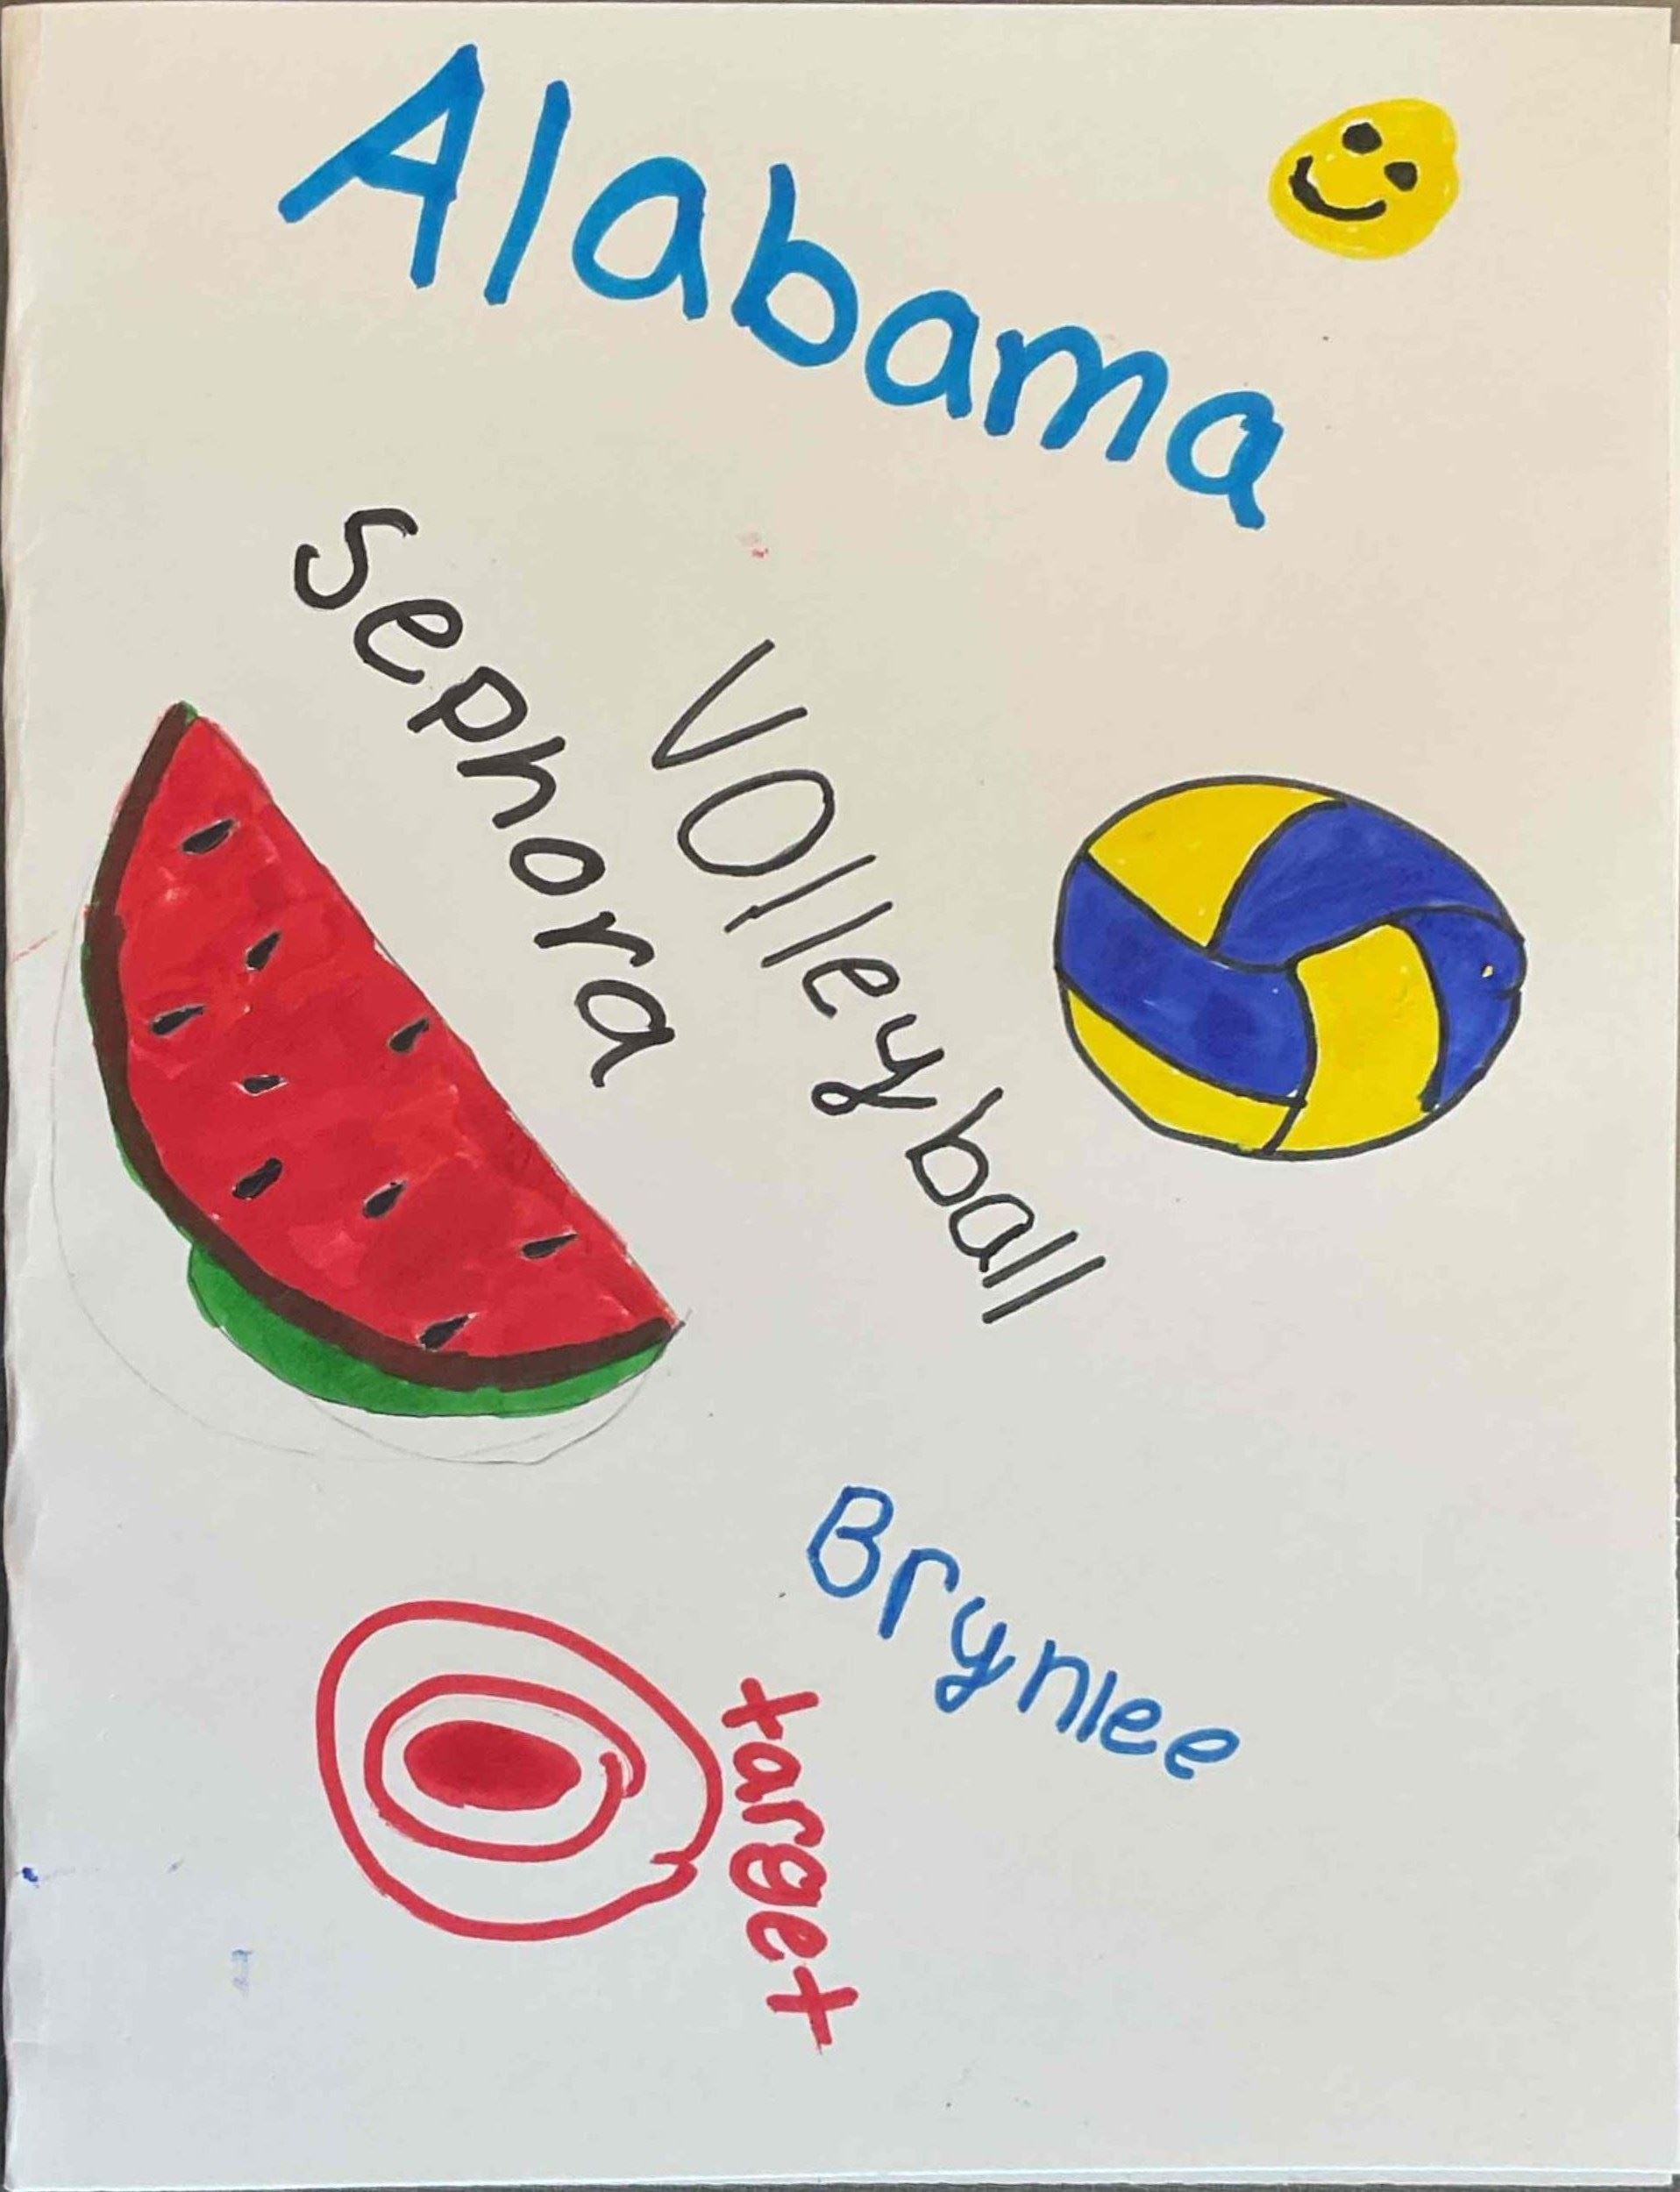 Alabama
Sephora
Volleyball
Brynlee
target